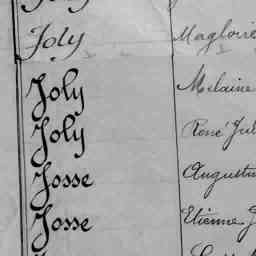 Joly Magloire
Joly Melaine
Joly René Jul
Josse Augustin
Josse Etienne J